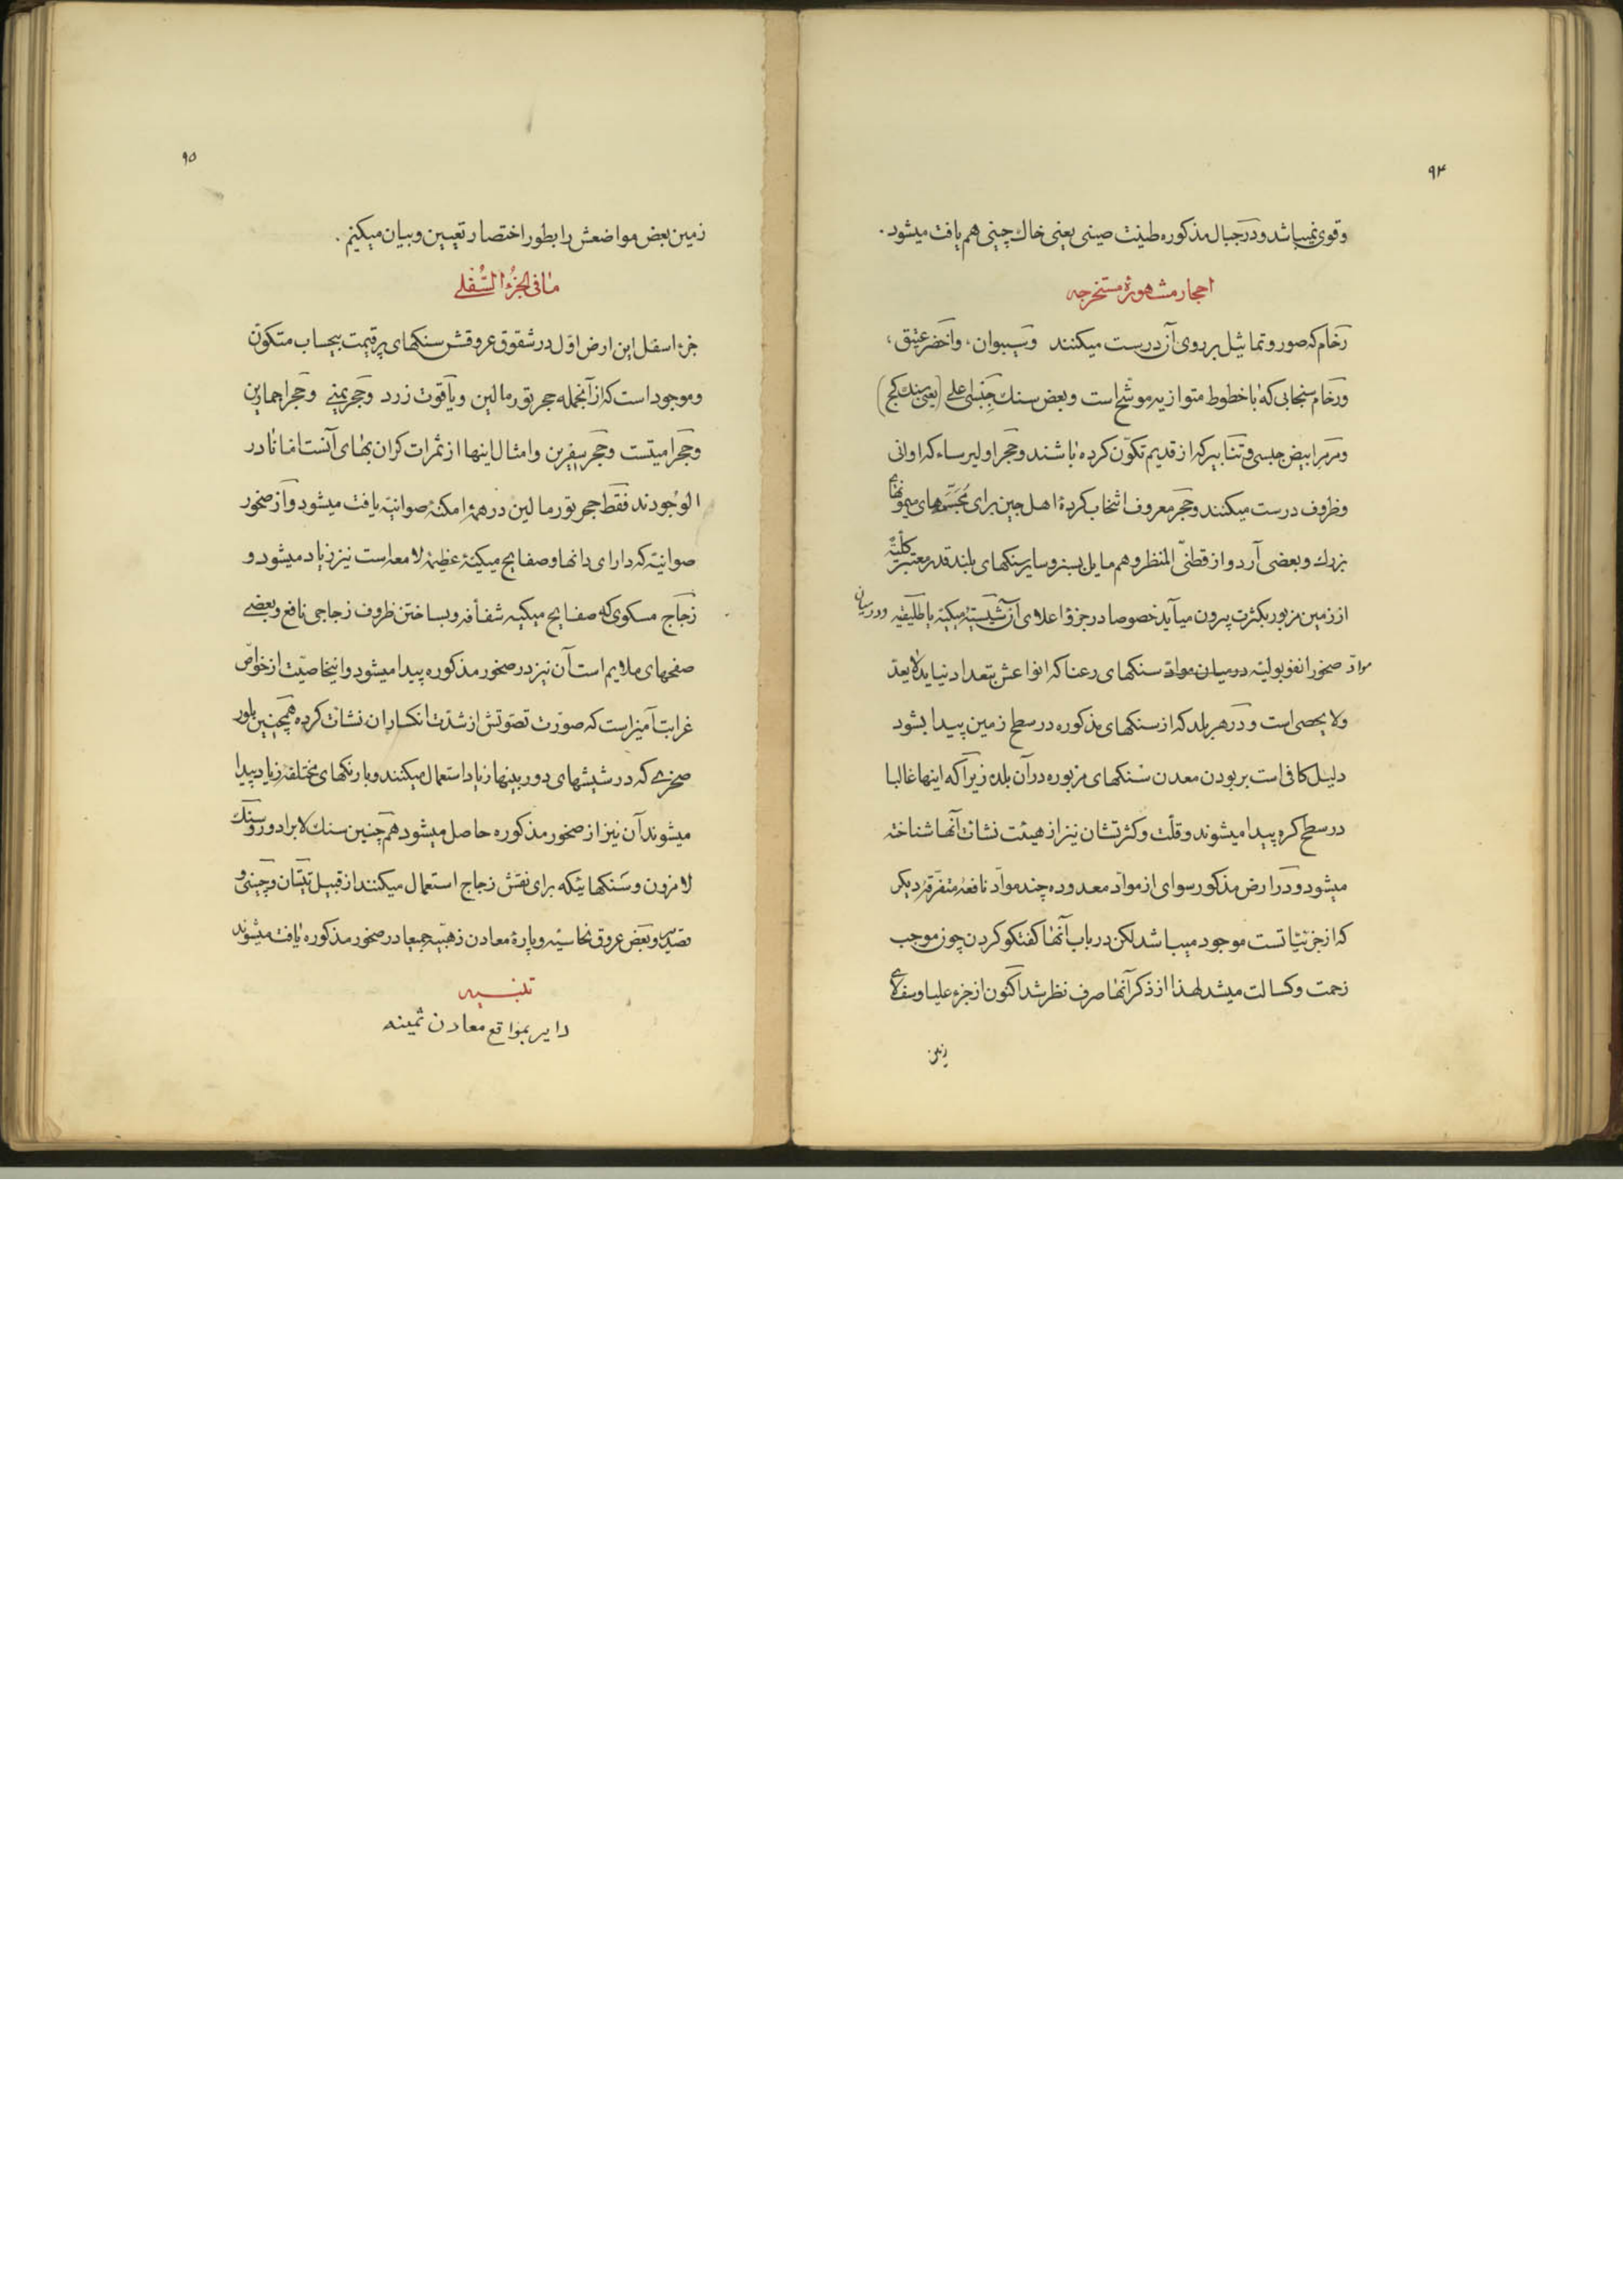 ۹۴
وقوی نمیباشد ودر جبال مذکوره طینت صینی یعنی خاك چینی هم یافت میشود .
احجار مشهورهٔ مستخرجه
رخام که صور و تماثیل بر روی آن درست میکنند وسیبوان ، واخضر عتیق ،
ورخام سنجابی که با خطوط متوازیه موشح است وبعض سنك جبسی اعلی (یعنی سنك کچ)
ومرمر ابیض جبسی وتنابیر که از قدیم تکوّن کرده باشند وحجر اولیر ساء که اوانی
وظروف درست میکنند وحجر معروف انتخاب کردهٔ اهل چین برای مجسّمهای میمونهای
بزرك وبعضی آردواز قطنیّ المنظر وهم مایل بسبز وسایر سنکهای بلند قدر معتبر کلّیّةً
از زمین مزبور بکثرت بیرون میآید خصوصا در جزؤ اعلای آن شیستیهٔ میکیه یا طلقیه ودر میان
موادّ صخور انفوبولیّه در میان موادّ سنکهای رعنا که انواعش بتعداد نیاید لایعدّ
ولا یحصی است ودر هر بلد که از سنکهای مذکوره در سطح زمین پیدا بشود
دلیل کافی است بر بودن معدن سنکهای مزبوره در آن بلده زیرا که اینها غالبا
در سطح کره پیدا میشوند وقلّت وکثرتشان نیز از هیئت نشات آنها شناخته
میشود ودر ارض مذکور سوای از موادّ معدوده چند موادّ نافعهٔ متفرّقهٔ دیکر
که از جزئیّاتست موجود میباشد لکن در باب آنها کفتکو کردن چون موجب
زحمت وکسالت میشد لهذا از ذکر آنها صرف نظر شد اکنون از جزء علیا وسفلای
زمین
۹۵
زمین بعض مواضعش را بطور اختصار تعیین وبیان میکنیم .
مافی الجزء السّفلی
جزء اسفل این ارض اوّل در شقوق عروقش سنکهای پر قیمت بیحساب متکوّن
وموجود است که از آنجمله حجر تورمالین ویاقوت زرد وحجر یمنی وحجر اجمارین
وحجر امیتست وحجر سفرین وامثال اینها از ثمرات کران بهای آنست امّا نادر
الوجودند فقط حجر تورمالین در همهٔ امکنهٔ صوانیّه یافت میشود واز صخور
صوانیّه که دارای دانها وصفایح میکیهٔ عظیمهٔ لامعه است نیز زیاد میشود و
زجاج مسکوی که صفایح میکیه شفافه وبساختن ظروف زجاجی نافع وبعضی
صفحهای ملایم است آن نیز در صخور مذکوره پیدا میشود واینخاصیّت از خواصّ
غرابت آمیز است که صورت تصوّتش از شدّت انکسار ان نشات کرده همچنین بلور
صخری که در شیشهای دوربینها زیاد استعمال میکنند وبا رنکهای مختلفه زیاد پیدا
میشوند آن نیز از صخور مذکوره حاصل میشود هم چنین سنك لابرادور وسنك
لامزون وسنکهائیکه برای نقش زجاج استعمال میکنند از قبیل تیتان وچینی و
قصدیر وبعض عروق نحاسیّه وپارهٔ معادن ذهبیّه جمیعا در صخور مذکوره یافت میشوند
تنبیه
دایر بمواقع معادن ثمینه